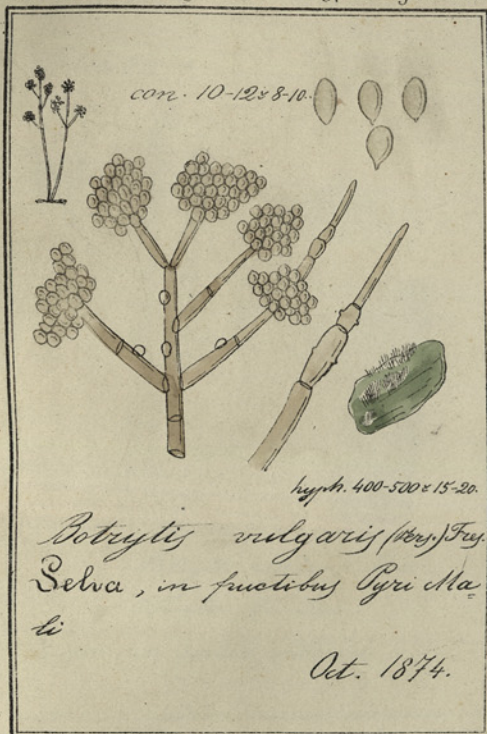 con. 10-12 ≈ 8-10.
hyph. 400-500 ≈ 15-20.
Botrytis vulgaris (Pers.) Fres.
Selva, in fructibus Pyri Ma=
li
Oct. 1874.